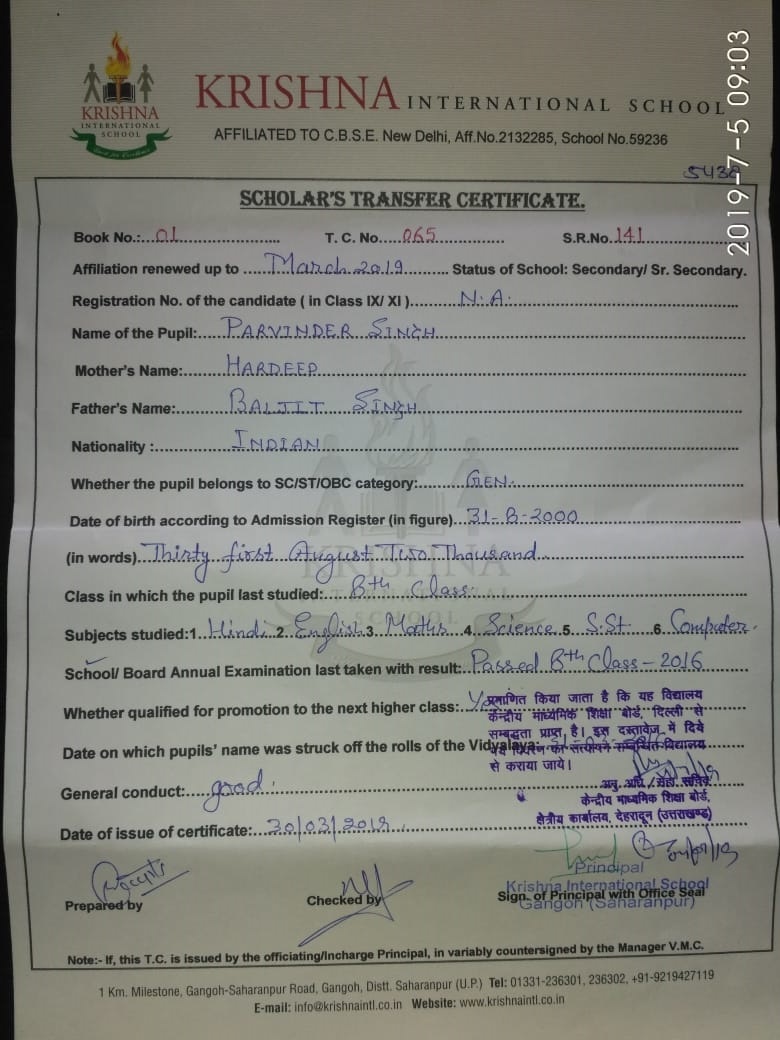 2019-7-5 09:03
KRISHNA
INTERNATIONAL
SCHOOL
KRISHNA INTERNATIONAL SCHOOL
AFFILIATED TO C.B.S.E. New Delhi, Aff.No.2132285, School No.59236
5438
SCHOLAR'S TRANSFER CERTIFICATE.
Book No.:...01............ T. C. No....065............ S.R.No.141............
Affiliation renewed up to ....March 2019........ Status of School: Secondary/ Sr. Secondary.
Registration No. of the candidate ( in Class IX/ XI )..........N.A.............
Name of the Pupil:.....PARVINDER SINGH............
Mother's Name:........HARDEEP............
Father's Name:........BALJIT SINGH............
Nationality :............INDIAN............
Whether the pupil belongs to SC/ST/OBC category:........GEN.............
Date of birth according to Admission Register (in figure)...31-8-2000............
(in words).Thirty first August Two Thousand............
Class in which the pupil last studied:.....8th Class.............
Subjects studied:1..Hindi..2..English.3...Maths..4...Science.5...S.St...6..Computer.
School/ Board Annual Examination last taken with result:..Passed 8th Class-2016
Whether qualified for promotion to the next higher class:..
Date on which pupils' name was struck off the rolls of the Vidyalaya:
प्रमाणित किया जाता है कि यह विद्यालय
केन्द्रीय माध्यमिक शिक्षा बोर्ड, दिल्ली से
सम्बद्धता प्राप्त है। इस दस्तावेज में दिये
गये विवरण का सत्यापन सम्बन्धित विद्यालय
से कराया जाये।
General conduct:....good.............
केन्द्रीय माध्यमिक शिक्षा बोर्ड,
क्षेत्रीय कार्यालय, देहरादून (उत्तराखण्ड)
Date of issue of certificate:..30/03/2019............
Principal
Krishna International School
Gangoh (Saharanpur)
Prepared by Checked by Sign. of Principal with Office Seal
Note:- If, this T.C. is issued by the officiating/Incharge Principal, in variably countersigned by the Manager V.M.C.
1 Km. Milestone, Gangoh-Saharanpur Road, Gangoh, Distt. Saharanpur (U.P.) Tel: 01331-236301, 236302, +91-9219427119
E-mail: info@krishnaintl.co.in Website: www.krishnaintl.co.in